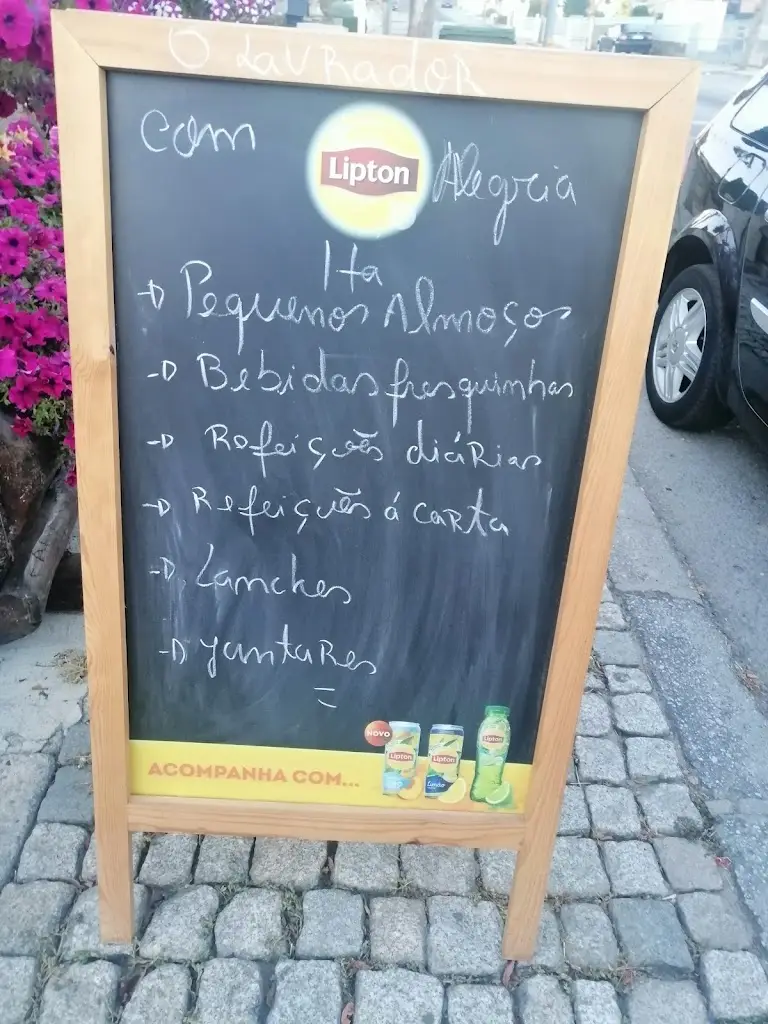 O LavRadoR
com Lipton Alegria
Há
Pequenos Almoços
Bebidas fresquinhas
Refeições diáRias
Refeições á caRta
Lanches
JantaRes
NOVO
Lipton Lipton Lipton
ACOMPANHA COM...